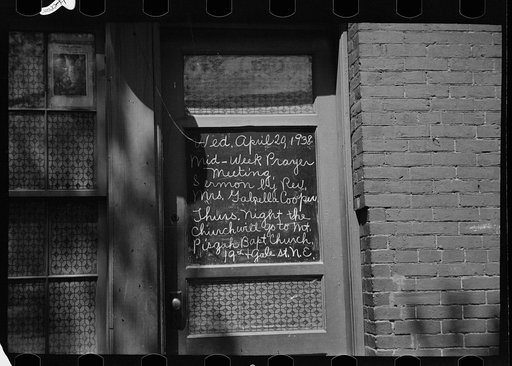 Wed, April 29, 1938
Mid-Week Prayer
Meeting
Sermon by Rev,
Mrs, Galzella Cooper
Thurs. Night the
Church will go to Mt.
Pisgah Bapt Church,
19th + Gale St, N.E.